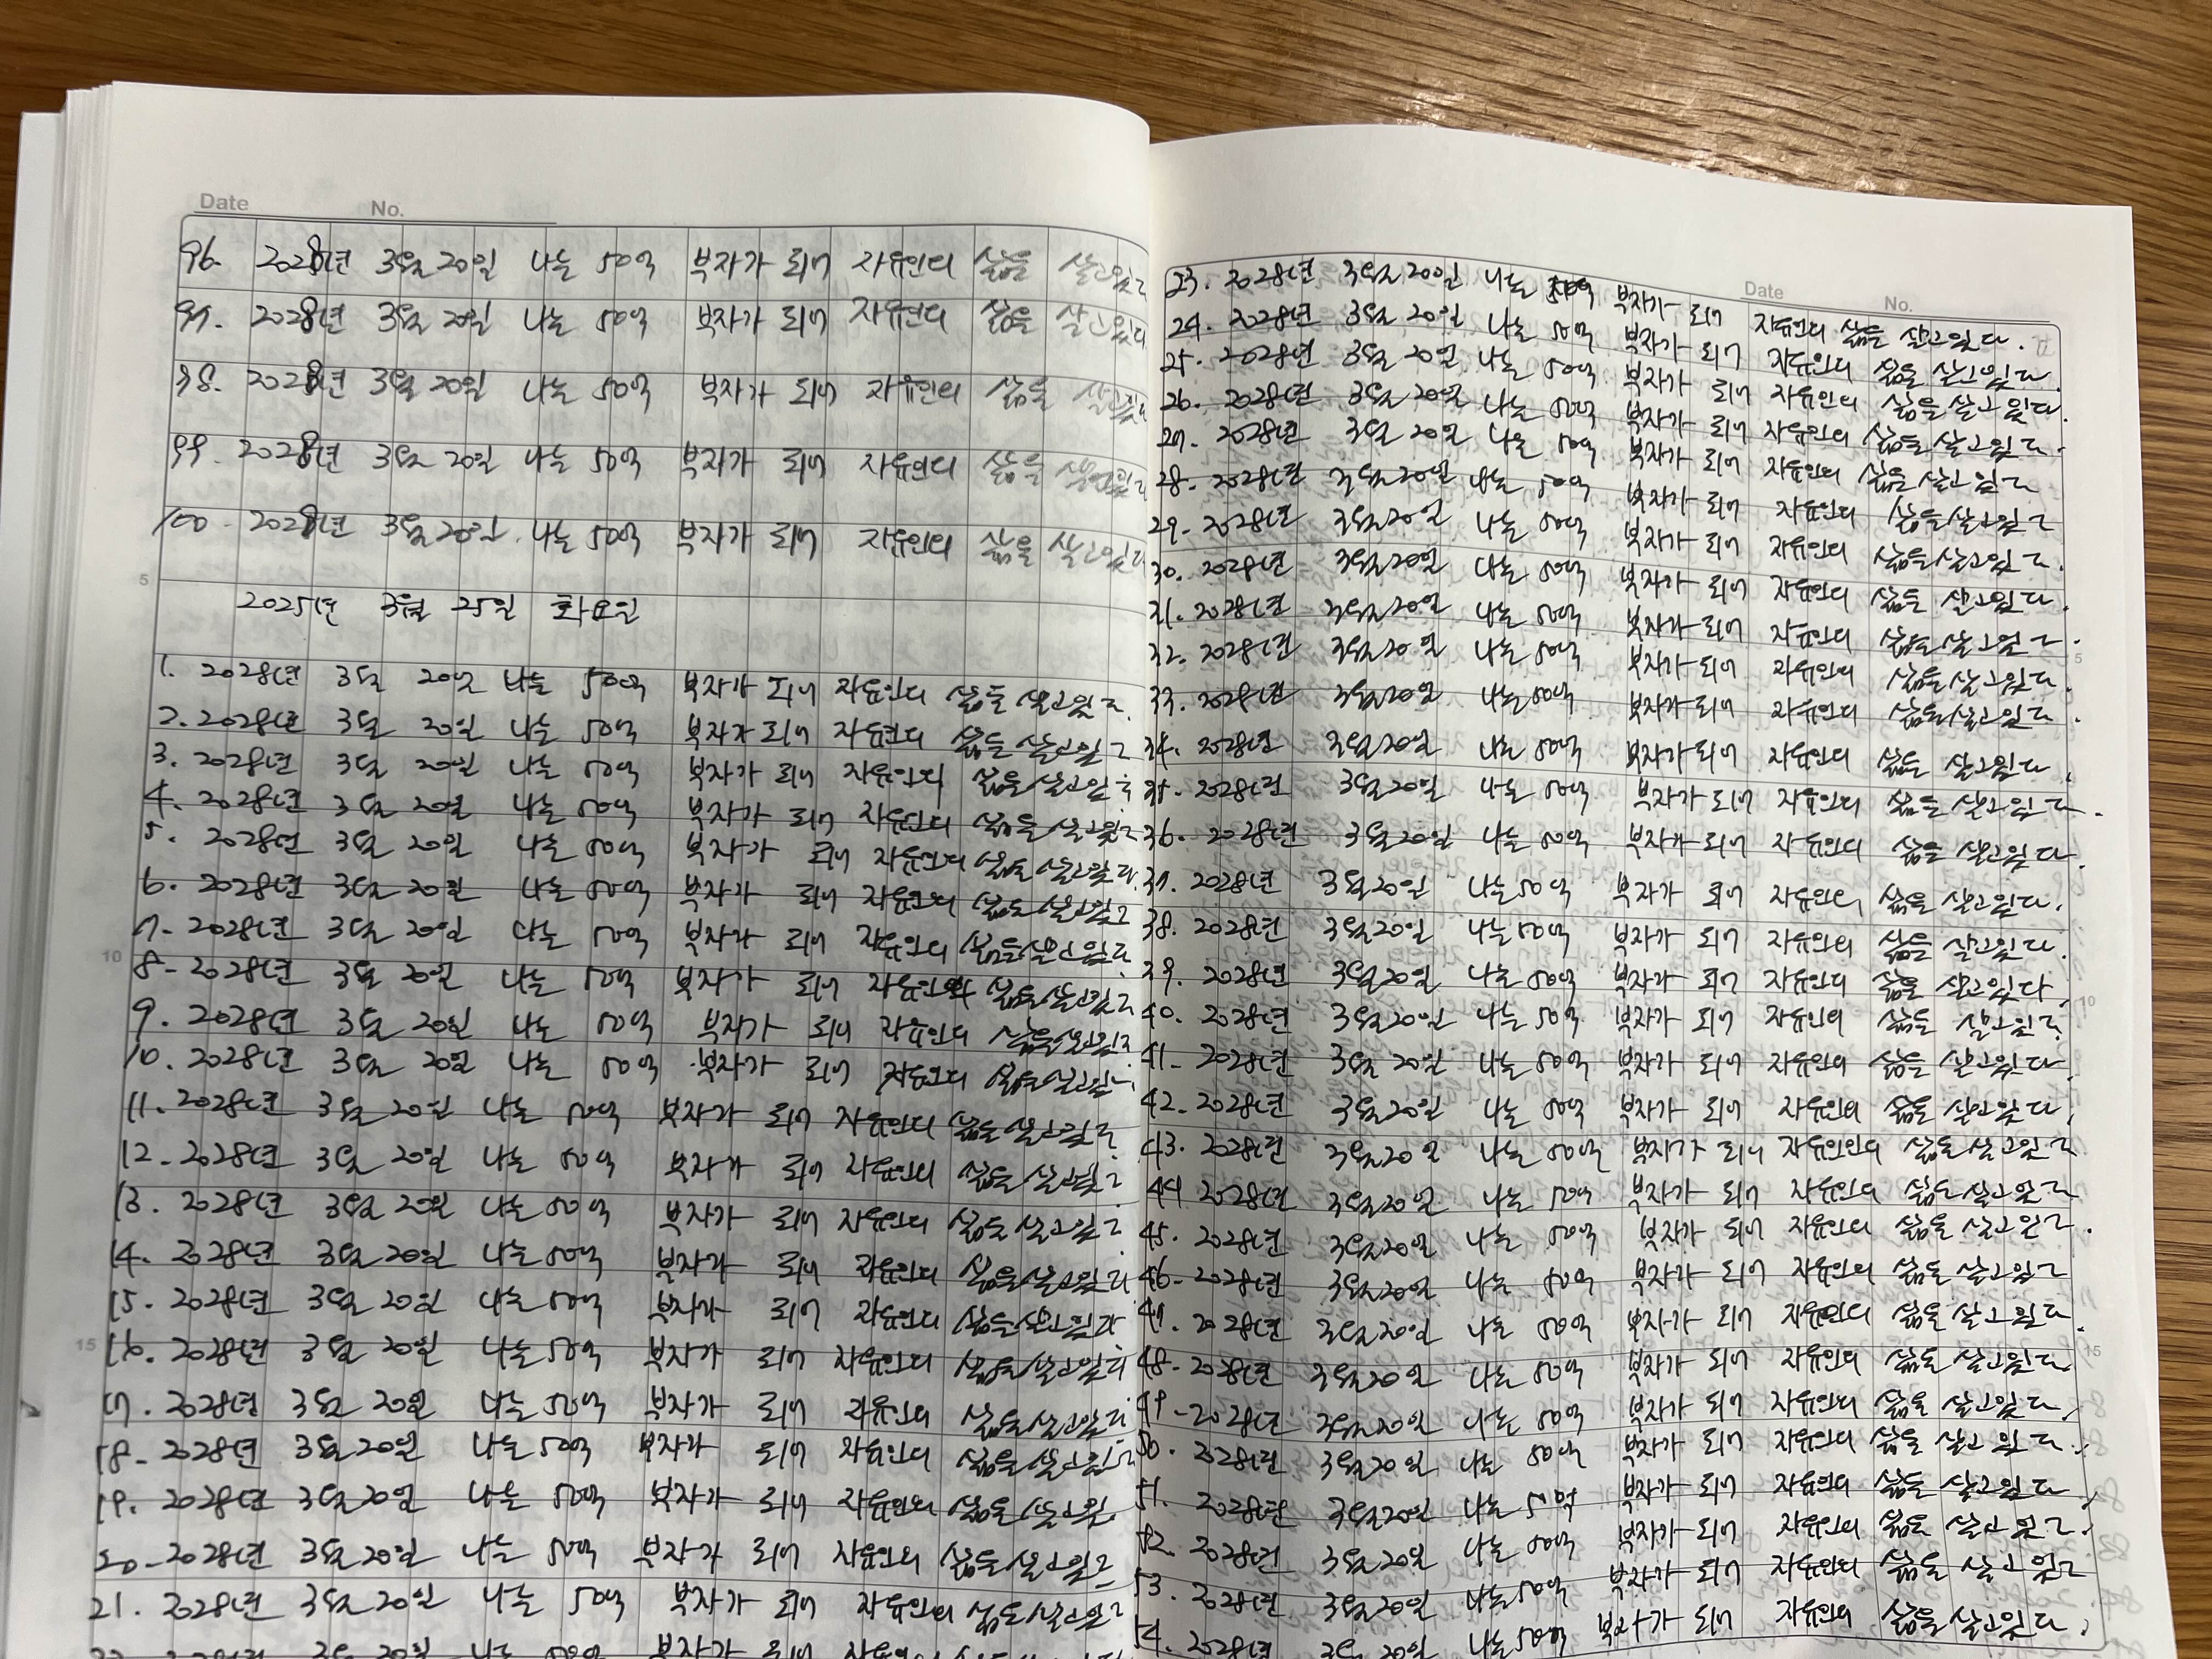 Date No.
96. 2028년 3월 20일 나는 50억 부자가 되어 자유인의 삶을 살고있다
97. 2028년 3월 20일 나는 50억 부자가 되어 자유인의 삶을 살고있다
98. 2028년 3월 20일 나는 50억 부자가 되어 자유인의 삶을 살고있다
99. 2028년 3월 20일 나는 50억 부자가 되어 자유인의 삶을 살고있다
100. 2028년 3월 20일. 나는 50억 부자가 되어 자유인의 삶을 살고있다
5
2025년 3월 25일 화요일
1. 2028년 3월 20일 나는 50억 부자가 되어 자유인의 삶을 살고있다.
2. 2028년 3월 20일 나는 50억 부자가 되어 자유인의 삶을 살고있다
3. 2028년 3월 20일 나는 50억 부자가 되어 자유인의 삶을 살고있다
4. 2028년 3월 20일 나는 50억 부자가 되어 자유인의 삶을 살고있다
5. 2028년 3월 20일 나는 50억 부자가 되어 자유인의 삶을 살고있다.
6. 2028년 3월 20일 나는 50억 부자가 되어 자유인의 삶을 살고있다
7. 2028년 3월 20일 나는 50억 부자가 되어 자유인의 삶을 살고있다
10
8. 2028년 3월 20일 나는 50억 부자가 되어 자유인의 삶을 살고있다
9. 2028년 3월 20일 나는 50억 부자가 되어 자유인의 삶을 살고있다
10. 2028년 3월 20일 나는 50억 부자가 되어 자유인의 삶을 살고있다
11. 2028년 3월 20일 나는 50억 부자가 되어 자유인의 삶을 살고있다
12. 2028년 3월 20일 나는 50억 부자가 되어 자유인의 삶을 살고있다
13. 2028년 3월 20일 나는 50억 부자가 되어 자유인의 삶을 살고있다
14. 2028년 3월 20일 나는 50억 부자가 되어 자유인의 삶을 살고있다
15. 2028년 3월 20일 나는 50억 부자가 되어 자유인의 삶을 살고있다
15
16. 2028년 3월 20일 나는 50억 부자가 되어 자유인의 삶을 살고있다
17. 2028년 3월 20일 나는 50억 부자가 되어 자유인의 삶을 살고있다
18. 2028년 3월 20일 나는 50억 부자가 되어 자유인의 삶을 살고있다
19. 2028년 3월 20일 나는 50억 부자가 되어 자유인의 삶을 살고있
20. 2028년 3월 20일 나는 50억 부자가 되어 자유인의 삶을 살고있다
21. 2028년 3월 20일 나는 50억 부자가 되어 자유인의 삶을 살고있다
22. 2028년 3월 20일 나는 50억 부자가 되어
Date No.
23. 2028년 3월 20일 나는 50억 부자가 되어 자유인의 삶을 살고있다.
24. 2028년 3월 20일 나는 50억 부자가 되어 자유인의 삶을 살고있다.
25. 2028년 3월 20일 나는 50억 부자가 되어 자유인의 삶을 살고있다.
26. 2028년 3월 20일 나는 50억 부자가 되어 자유인의 삶을 살고있다.
27. 2028년 3월 20일 나는 50억 부자가 되어 자유인의 삶을 살고있다
28. 2028년 3월 20일 나는 50억 부자가 되어 자유인의 삶을 살고있다
29. 2028년 3월 20일 나는 50억 부자가 되어 자유인의 삶을 살고있다.
30. 2028년 3월 20일 나는 50억 부자가 되어 자유인의 삶을 살고있다.
31. 2028년 3월 20일 나는 50억 부자가 되어 자유인의 삶을 살고있다.
5
32. 2028년 3월 20일 나는 50억 부자가 되어 자유인의 삶을 살고있다.
33. 2028년 3월 20일 나는 50억 부자가 되어 자유인의 삶을 살고있다.
34. 2028년 3월 20일 나는 50억 부자가 되어 자유인의 삶을 살고있다.
35. 2028년 3월 20일 나는 50억 부자가 되어 자유인의 삶을 살고있다.
36. 2028년 3월 20일 나는 50억 부자가 되어 자유인의 삶을 살고있다.
37. 2028년 3월 20일 나는 50억 부자가 되어 자유인의 삶을 살고있다.
38. 2028년 3월 20일 나는 50억 부자가 되어 자유인의 삶을 살고있다.
39. 2028년 3월 20일 나는 50억 부자가 되어 자유인의 삶을 살고있다.
10
40. 2028년 3월 20일 나는 50억 부자가 되어 자유인의 삶을 살고있다
41. 2028년 3월 20일 나는 50억 부자가 되어 자유인의 삶을 살고있다.
42. 2028년 3월 20일 나는 50억 부자가 되어 자유인의 삶을 살고있다.
43. 2028년 3월 20일 나는 50억 부자가 되어 자유인의 삶을 살고있다
44 2028년 3월 20일 나는 50억 부자가 되어 자유인의 삶을 살고있다
45. 2028년 3월 20일 나는 50억 부자가 되어 자유인의 삶을 살고있다.
46. 2028년 3월 20일 나는 50억 부자가 되어 자유인의 삶을 살고있다
47. 2028년 3월 20일 나는 50억 부자가 되어 자유인의 삶을 살고있다.
48. 2028년 3월 20일 나는 50억 부자가 되어 자유인의 삶을 살고있다
15
49. 2028년 3월 20일 나는 50억 부자가 되어 자유인의 삶을 살고있다.
50. 2028년 3월 20일 나는 50억 부자가 되어 자유인의 삶을 살고있다.
51. 2028년 3월 20일 나는 50억 부자가 되어 자유인의 삶을 살고있다
52. 2028년 3월 20일 나는 50억 부자가 되어 자유인의 삶을 살고있다.
53. 2028년 3월 20일 나는 50억 부자가 되어 자유인의 삶을 살고있다
54. 2028년 3월 20일 나는 50억 부자가 되어 자유인의 삶을 살고있다.